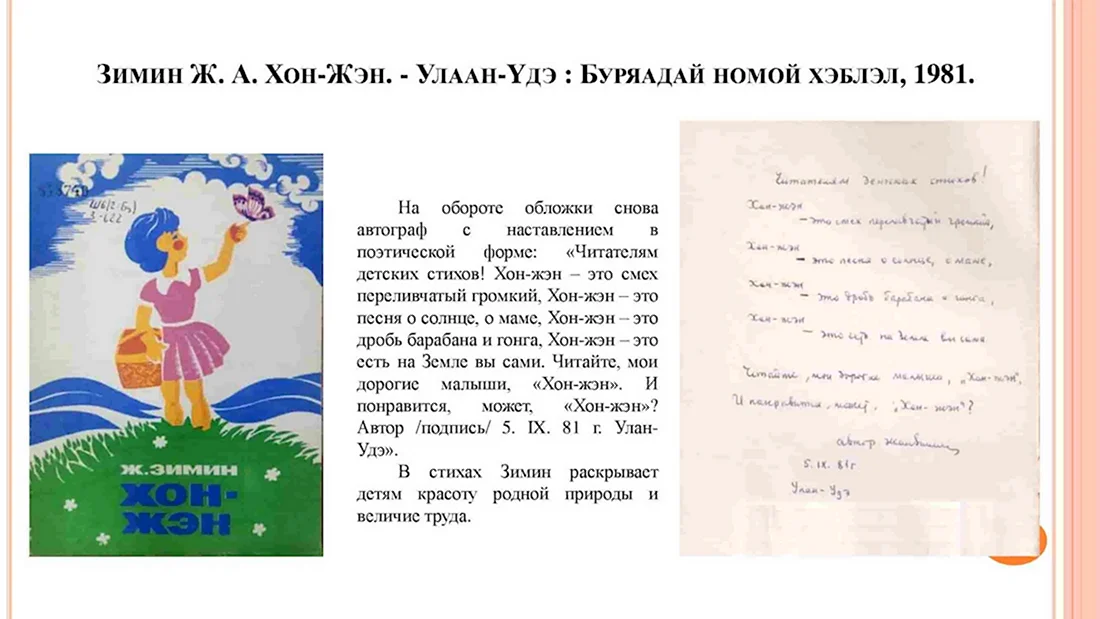 Зимин Ж. А. Хон-Жэн. - Улаан-Үдэ : Буряадай номой хэблэл, 1981.
Ш6(2=Бу)
З-622
Ж.ЗИМИН
ХОН-
ЖЭН
На обороте обложки снова
автограф с наставлением в
поэтической форме: «Читателям
детских стихов! Хон-жэн – это смех
переливчатый громкий, Хон-жэн – это
песня о солнце, о маме, Хон-жэн – это
дробь барабана и гонга, Хон-жэн – это
есть на Земле вы сами. Читайте, мои
дорогие малыши, «Хон-жэн». И
понравится, может, «Хон-жэн»?
Автор /подпись/ 5. IX. 81 г. Улан-
Удэ».
В стихах Зимин раскрывает
детям красоту родной природы и
величие труда.
Читателям детских стихов!
Хон-жэн
– это смех переливчатый громкий,
Хон-жэн
– это песня о солнце, о маме,
Хон-жэн
– это дробь барабана и гонга,
Хон-жэн
– это есть на Земле вы сами.
Читайте, мои дорогие малыши, „Хон-жэн",
И понравится, может, „Хон-жэн"?
автор
5. IX. 81 г
Улан-Удэ